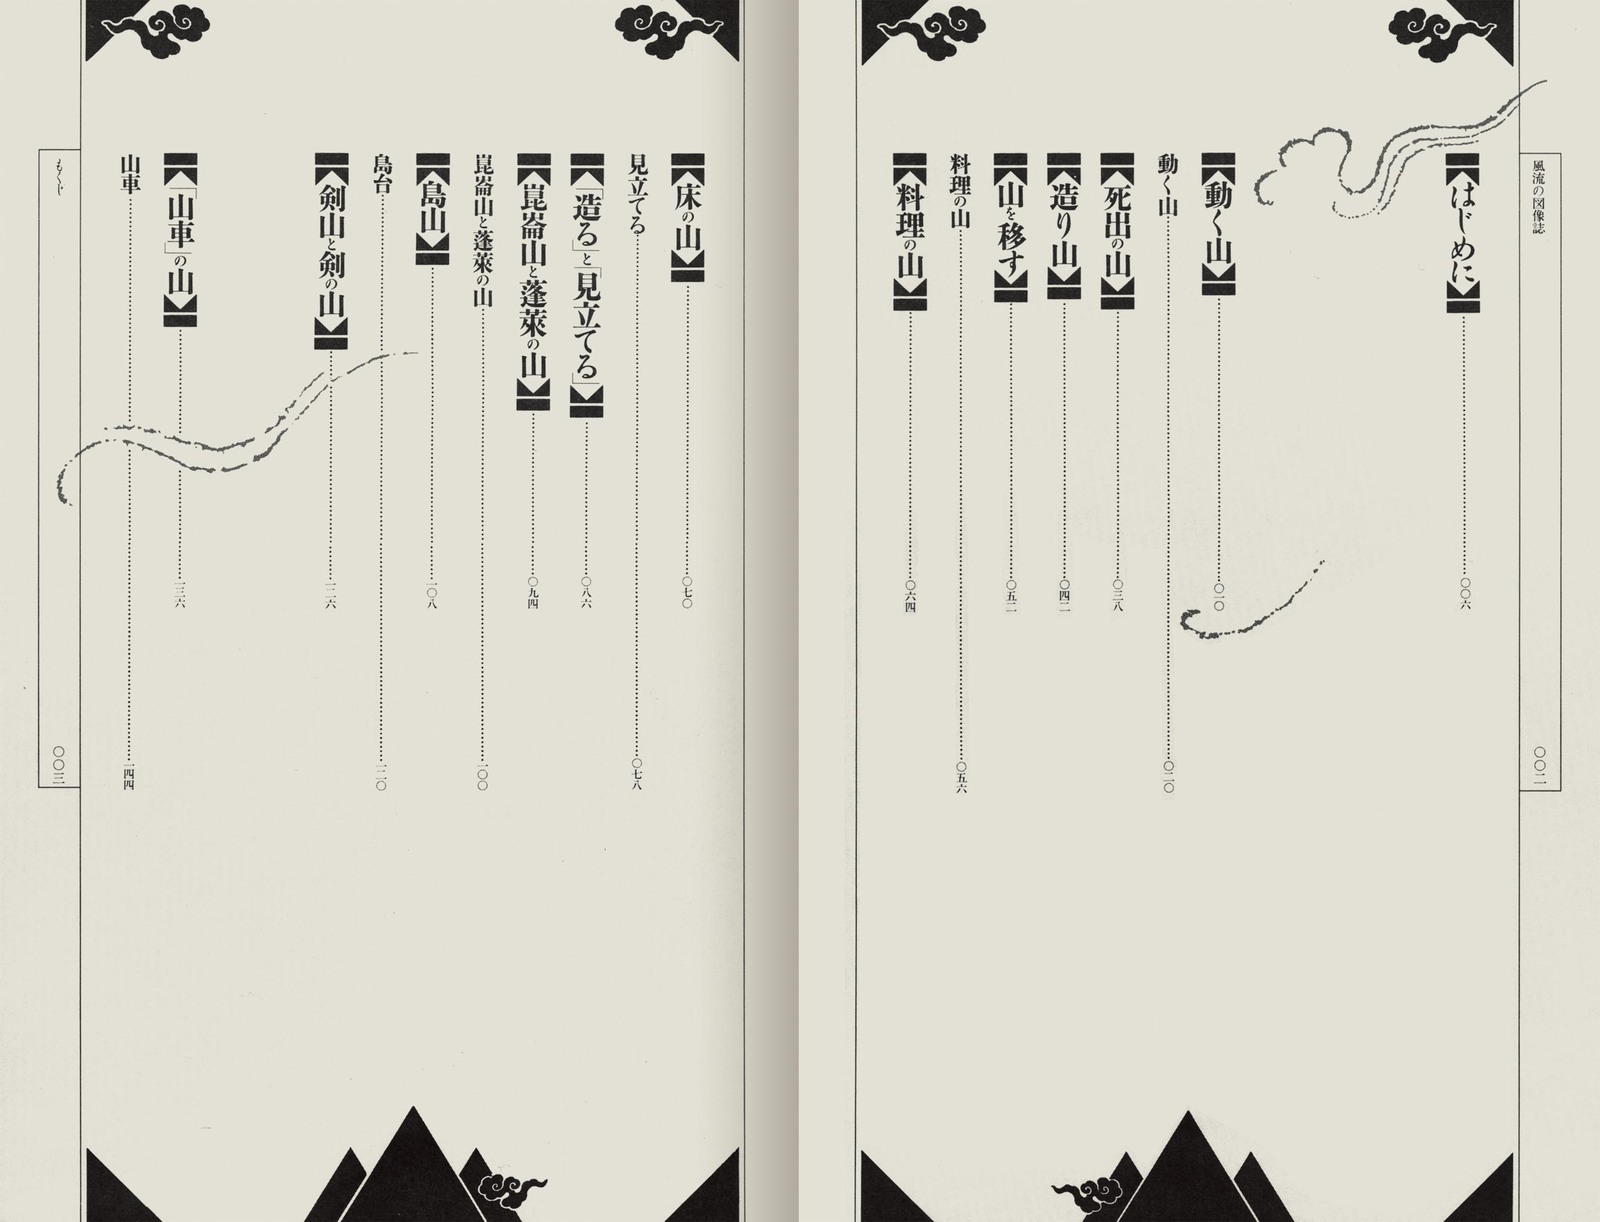 風流の図像誌
〇〇二
はじめに 〇〇六
動く山 〇一〇
動く山 〇二〇
死出の山 〇三八
造り山 〇四二
山を移す 〇五二
料理の山 〇五六
料理の山 〇六四
床の山 〇七〇
見立てる 〇七八
「造る」と「見立てる」 〇八六
崑崙山と蓬萊の山 〇九四
崑崙山と蓬萊の山 一〇〇
島山 一〇八
島台 一二〇
剣山と剣の山 一二六
「山車」の山 一三六
山車 一四四
もくじ
〇〇三